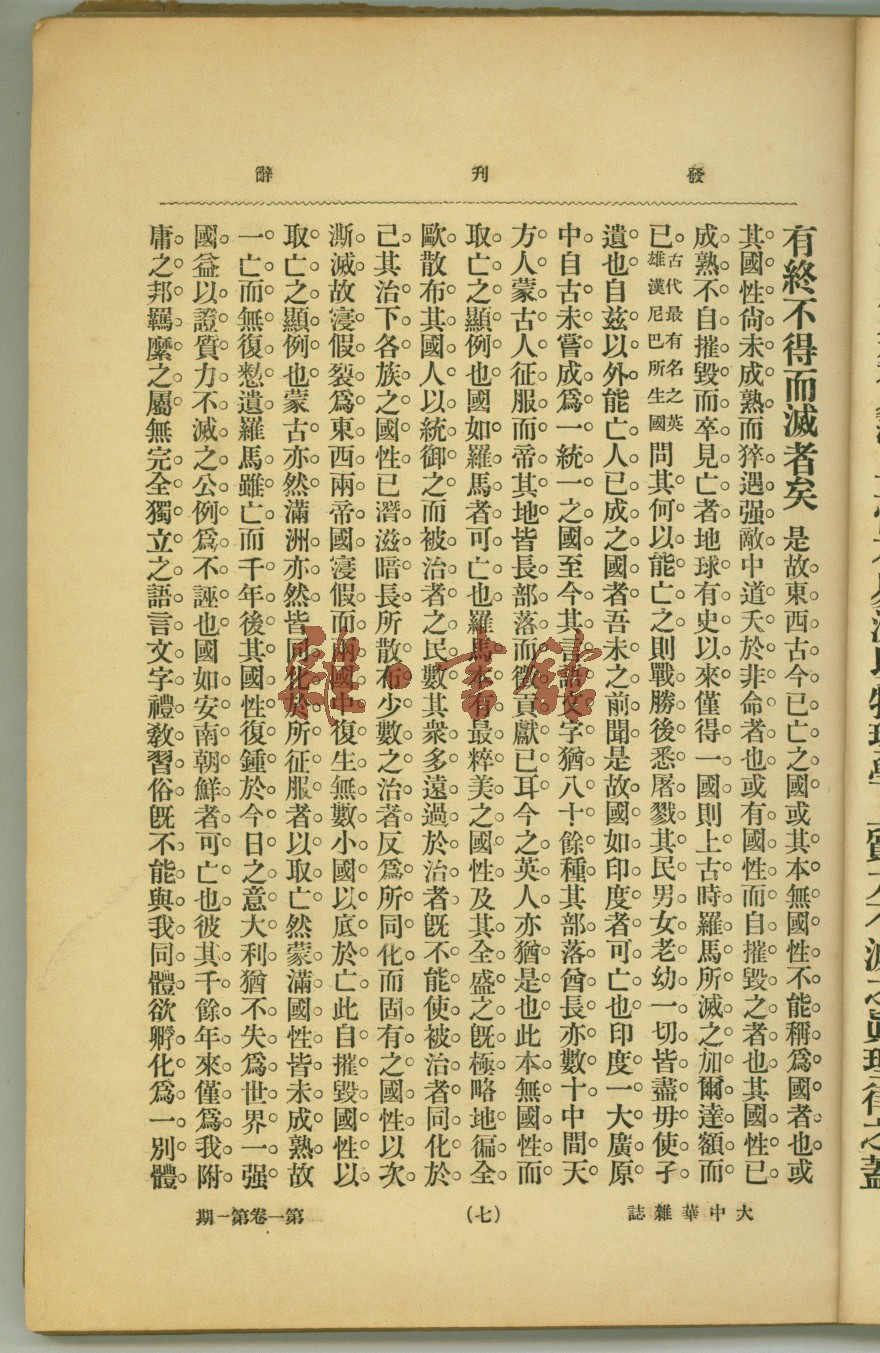 發刊辭
有終不得而滅者矣是故東西古今已亡之國或其本無國性不能稱爲國者也或
其國性尙未成熟而猝遇强敵中道夭於非命者也或有國性而自摧毀之者也其國性已
成熟不自摧毀而卒見亡者地球有史以來僅得一國則上古時羅馬所滅之加爾達額而
已古代最有名之英雄漢尼巴所生國問其何以能亡之則戰勝後悉屠戮其民男女老幼一切皆盡毋使孑
遺也自玆以外能亡人已成之國者吾未之前聞是故國如印度者可亡也印度一大廣原
中自古未嘗成爲一統一之國至今其言語文字猶八十餘種其部落酋長亦數十中間天
方人蒙古人征服而帝其地皆長部落而徵貢獻已耳今之英人亦猶是也此本無國性而
取亡之顯例也國如羅馬者可亡也羅馬本有最粹美之國性及其全盛之旣極略地徧全
歐散布其國人以統御之而被治者之民數其衆多遠過於治者旣不能使被治者同化於
己其治下各族之國性已潛滋暗長所散布少數之治者反爲所同化而固有之國性以次
澌滅故寖假裂爲東西兩帝國寖假而兩國中復生無數小國以底於亡此自摧毀國性以
取亡之顯例也蒙古亦然滿洲亦然皆同化於所征服者以取亡然蒙滿國性皆未成熟故
一亡而無復憖遺羅馬雖亡而千年後其國性復鍾於今日之意大利猶不失爲世界一强
國益以證質力不滅之公例爲不誣也國如安南朝鮮者可亡也彼其千餘年來僅爲我附
庸之邦羈縻之屬無完全獨立之語言文字禮敎習俗旣不能與我同體欲孵化爲一別體
大中華雜誌
(七)
第一卷第一期
雜·書館